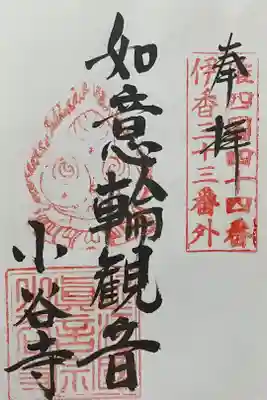 奉拝
四国四十四番
伊香三十三番外
如意輪観音
小谷寺